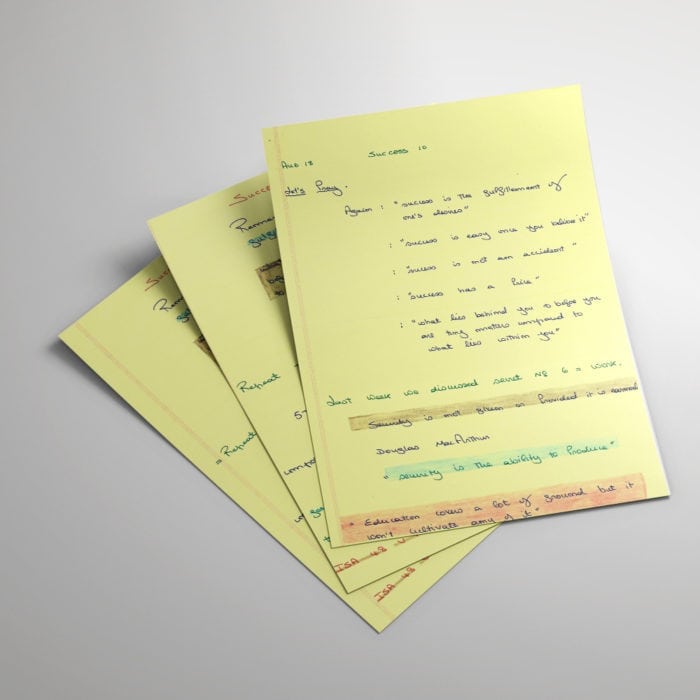 AUG 18 Success 10
Let's Pray.
Again : "success is the fulfillement of
one's desires"
: "success is easy once you believe it"
: "sucess is not an accident"
: "sucess has a Price"
: "what lies behind you & before you
are tiny matters compared to
what lies within you"
Last week we discussed secret Nº 6 = work.
Security is not given or Provided it is earned
Douglas MacArthur
"security is the ability to Produce"
"Education covers a lot of ground but it
won't cultivate any of it"
Succ
Repeat
ISA 48
Succ
= Repeat
ISA 48